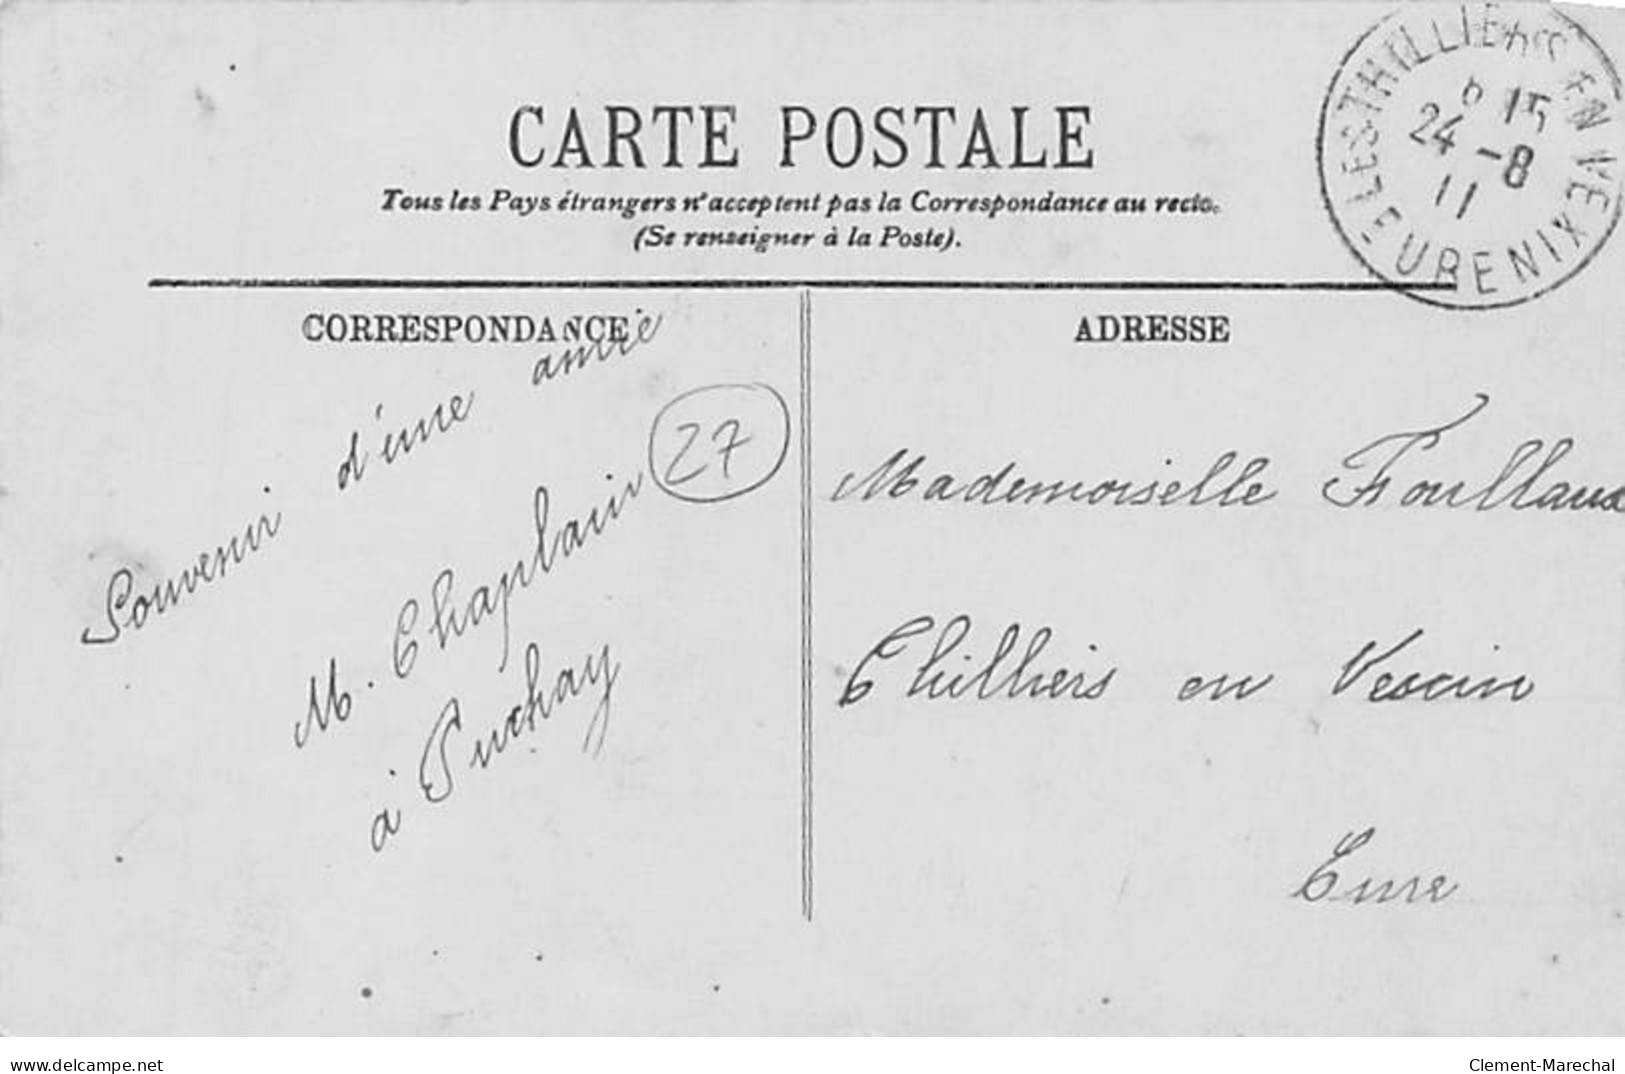 CARTE POSTALE
Tous les Pays étrangers n'acceptent pas la Correspondance au recto.
(Se renseigner à la Poste).
LES THILLIERS EN VEXIN EURE
15
24 -8
11
CORRESPONDANCE
ADRESSE
Souvenir d'une amie
27
M. Chaplain
à Puchay
Mademoiselle Foullaux
Thilliers en Vexin
Eure
delcampe.net
Clement-Marechal